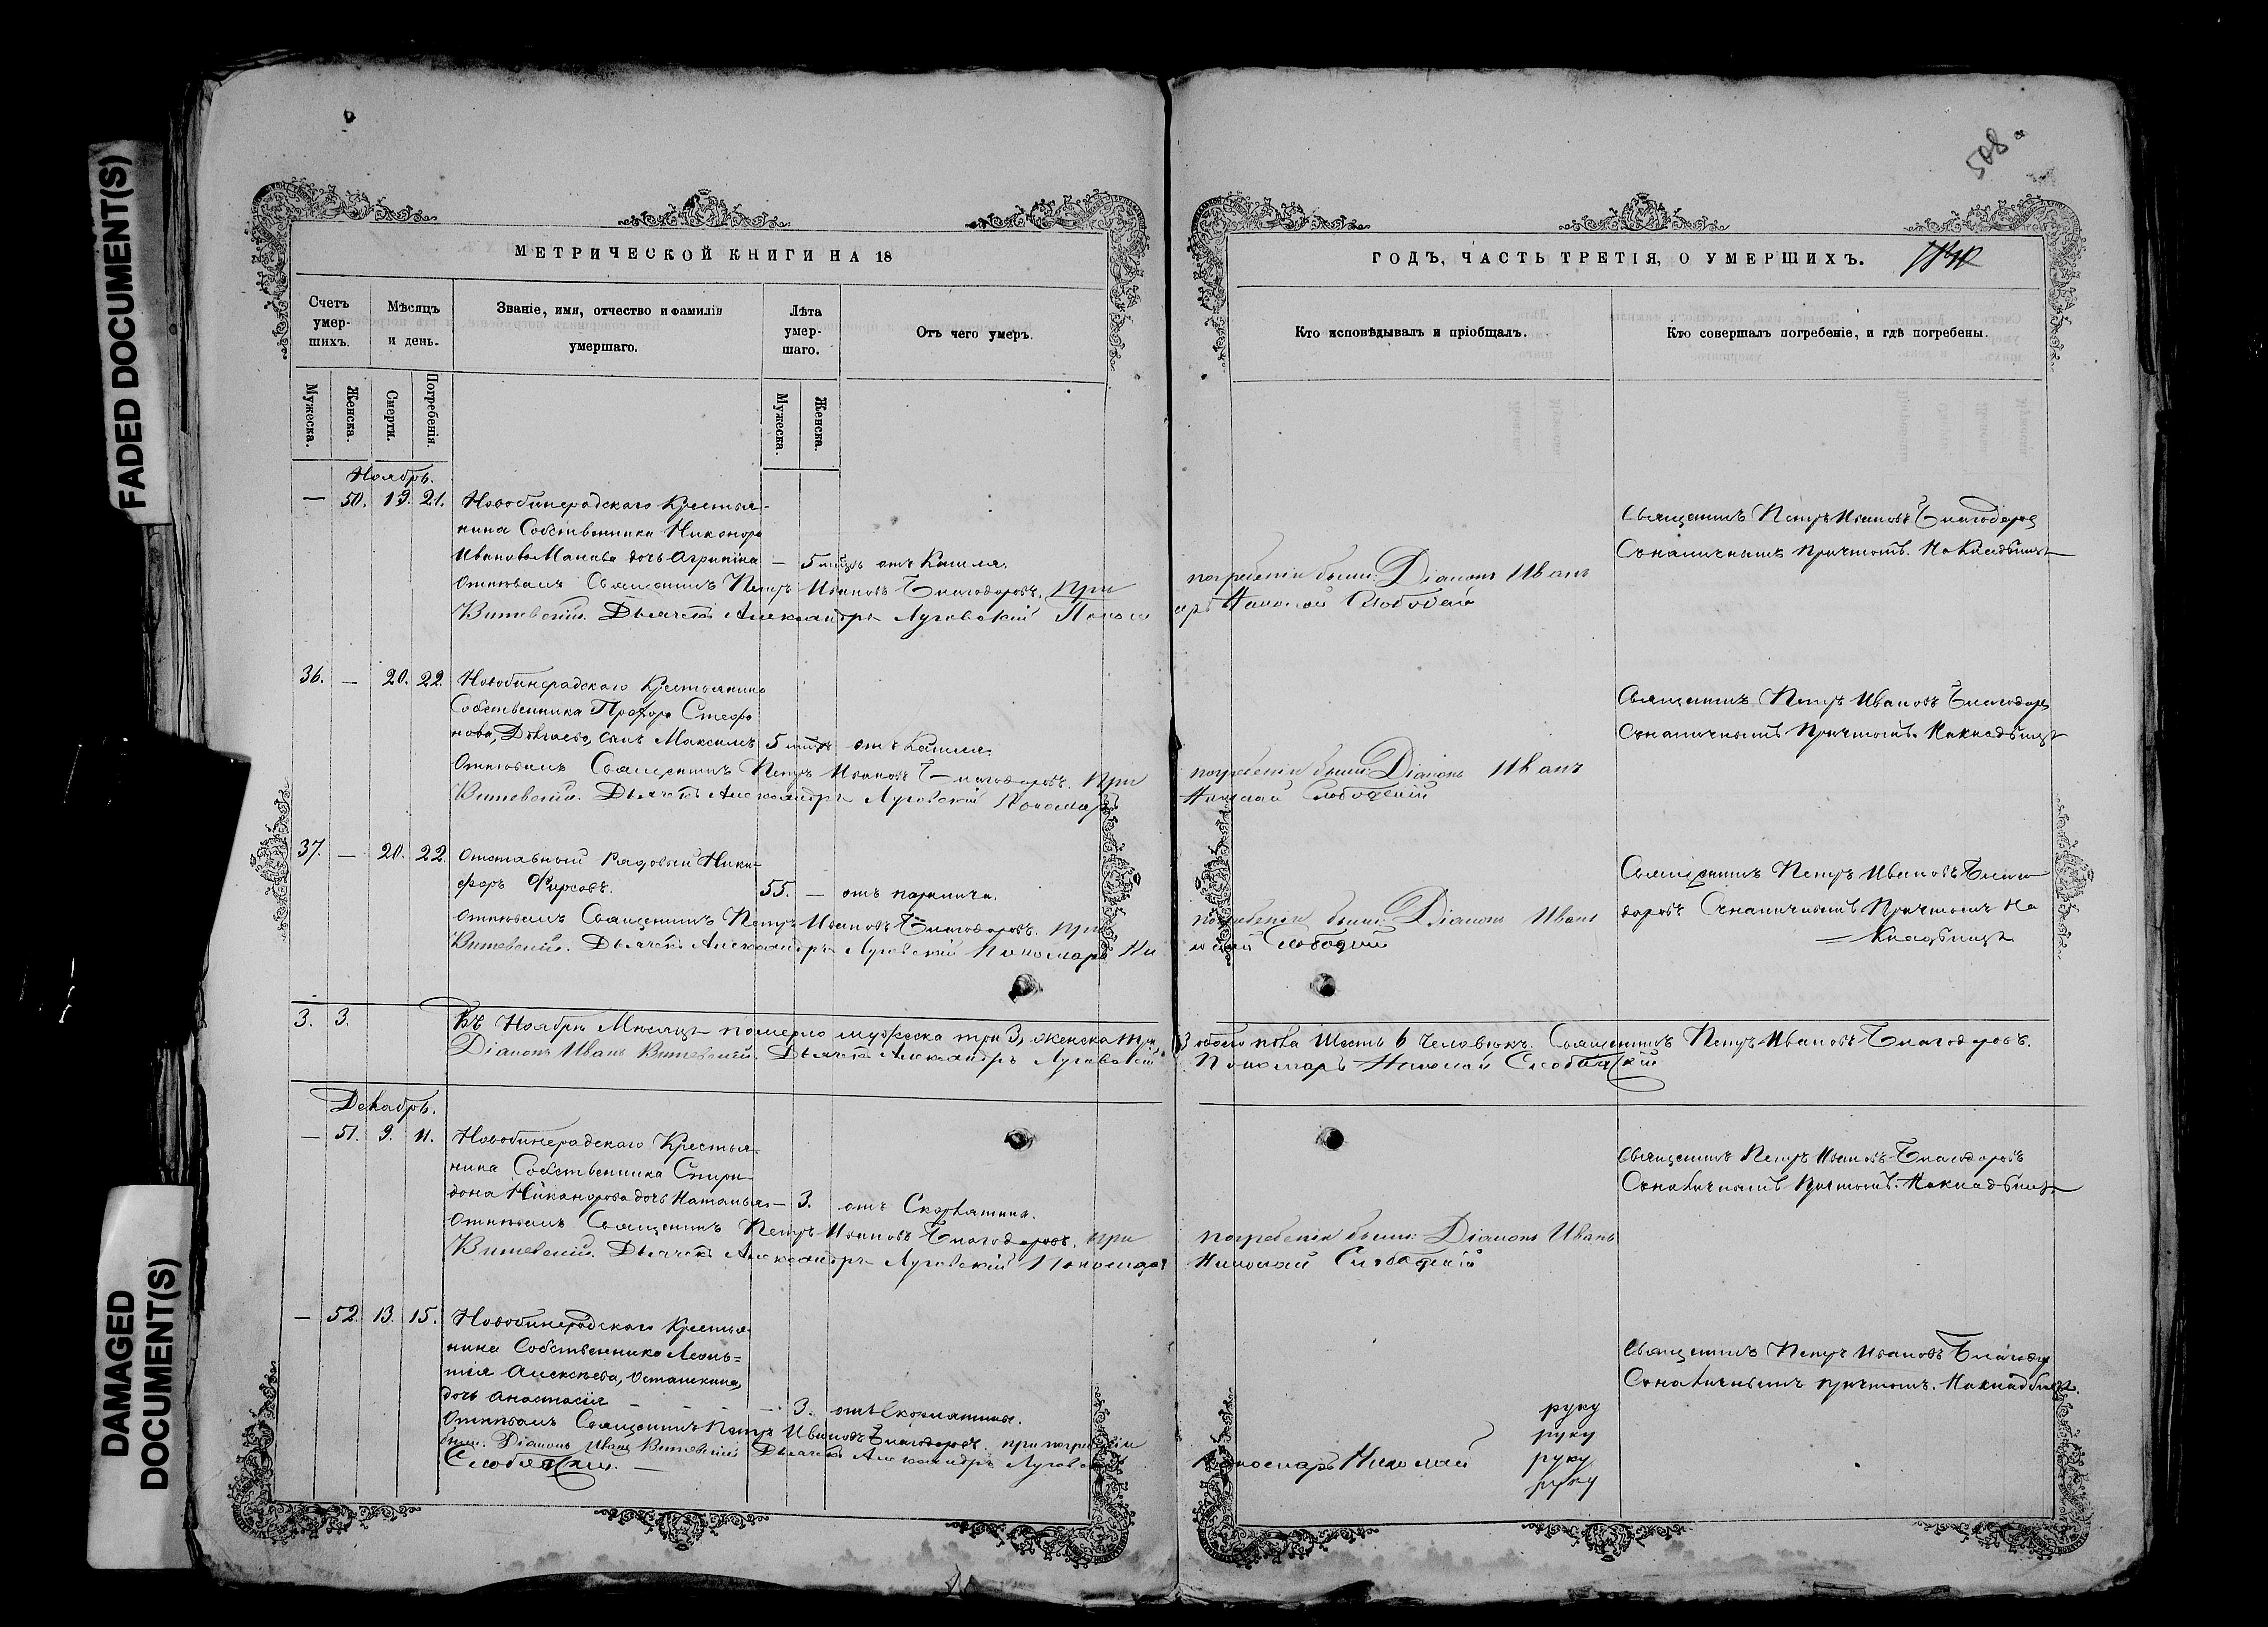 FADED DOCUMENT(S)
DAMAGED
DOCUMENT(S)
508
МЕТРИЧЕСКОЙ КНИГИ НА 18
Счетъ
умер-
шихъ.
Мѣсяцъ
и день.
Званіе, имя, отчество и фамилія
умершаго.
Лѣта
умер-
шаго.
Отъ чего умеръ.
Мужеска.
Женска.
Смерти.
Погребенія.
Мужеска.
Женска.
Ноябрь.
— 50. 19. 21. Новобинарадскаго Крестья-
нина Собственника Никонора
Иванова дочь Агрипина — 5 отъ Кашля.
Отпѣвалъ Священникъ Петръ Ивановъ Благодаровъ. При
Витевскій. Дьячекъ Александръ Луговскій
36. — 20. 22. Новобинарадскаго Крестьянина
Собственника Прохора Стефа
нова, сынъ Максимъ 5 отъ Кашля.
Отпѣвалъ Священникъ Петръ Ивановъ Благодаровъ. При
Витевскій. Дьячекъ Александръ Луговскій Пономарь
37. — 20. 22. Отставный Рядовый Ники-
форъ Фирсовъ. 55. — отъ паралича.
Отпѣвалъ Священникъ Петръ Ивановъ Благодаровъ. При
Витевскій. Дьячекъ Александръ Луговскій Пономарь Ни
3. 3. Въ Ноябрѣ Мѣсяцѣ померло мужеска три 3, женска три
Діаконъ Иванъ Витевскій. Дьячекъ Александръ Луговскій
Декабрь.
— 51. 9. 11. Новобинарадскаго Крестья-
нина Собственника Спири-
дона Никанорова дочь Наталья — 3. отъ Скорлатина.
Отпѣвалъ Священникъ Петръ Ивановъ Благодаровъ. при
Витевскій. Дьячекъ Александръ Луговскій Пономарь
— 52. 13. 15. Новобинарадскаго Крестья-
нина Собственника Леонь=
тія Алексѣева, Осташкина,
дочь Анастасія — 3. отъ Скорлатины.
Отпѣвалъ Священникъ Петръ Ивановъ Благодаровъ. при погребеніи
были. Діаконъ Иванъ Витевскій Дьячекъ Александръ Луговскій
ГОДЪ, ЧАСТЬ ТРЕТІЯ, О УМЕРШИХЪ.
Кто исповѣдывалъ и пріобщалъ.
Кто совершалъ погребеніе, и гдѣ погребены.
Священникъ Петръ Ивановъ Благодаров
Съ наличнымъ Причтомъ. На Кладбищѣ
погребеніи были: Діаконъ Иванъ
арь Николай
Священникъ Петръ Ивановъ Благодаров
Съ наличнымъ Причтомъ. На кладбищѣ
погребеніи были: Діаконъ Иванъ
Николай
Священникъ Петръ Ивановъ Благо
даровъ Съ наличнымъ Причтомъ На
= Кладбищѣ
погребеніи были: Діаконъ Иванъ
колай
3 обоего пола Шесть 6 Человѣкъ. Священникъ Петръ Ивановъ Благодаровъ.
Пономарь Николай
Священникъ Петръ Ивановъ Благодаровъ
Съ наличнымъ Причтомъ. На кладбищѣ
погребеніи были: Діаконъ Иванъ
Николай
Священникъ Петръ Ивановъ Благодар
Съ наличнымъ причтомъ. На кладбищѣ.
руку
руку
Пономарь Николай руку
руку